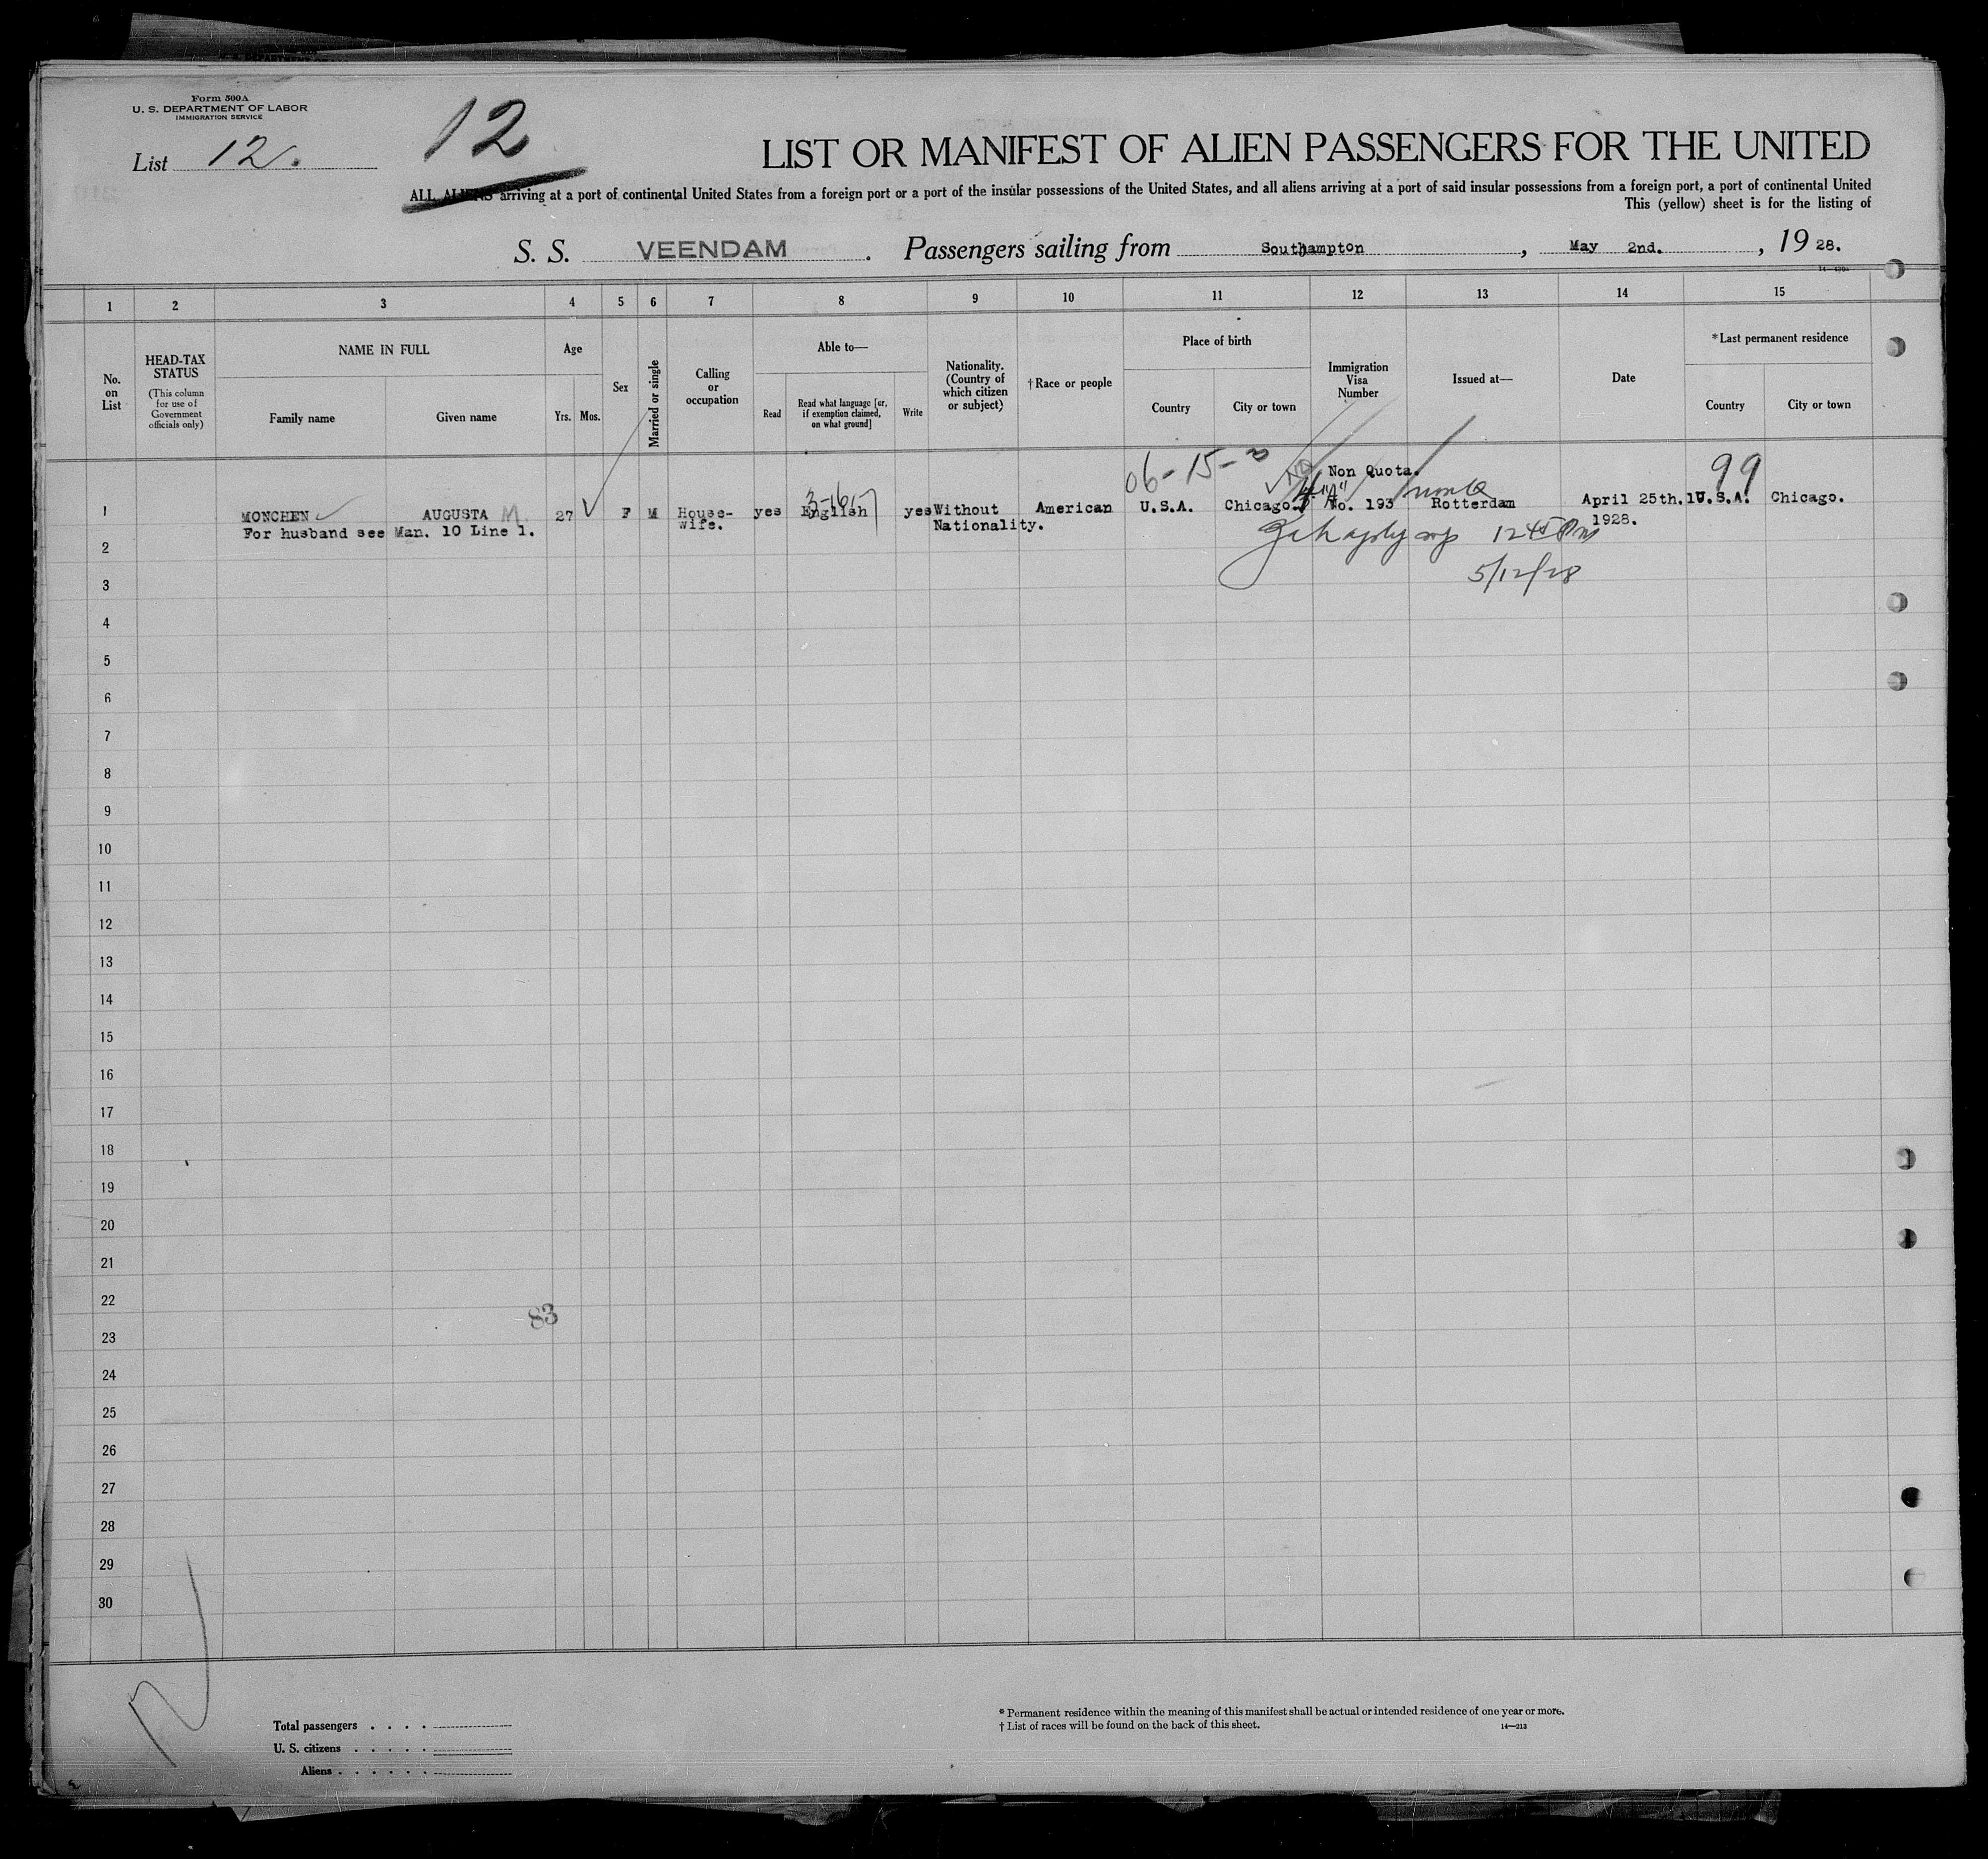 Form 500A
U. S. DEPARTMENT OF LABOR
IMMIGRATION SERVICE
List 12.
12
LIST OR MANIFEST OF ALIEN PASSENGERS FOR THE UNITED
ALL ALIENS arriving at a port of continental United States from a foreign port or a port of the insular possessions of the United States, and all aliens arriving at a port of said insular possessions from a foreign port, a port of continental United
This (yellow) sheet is for the listing of
S. S. VEENDAM. Passengers sailing from Southampton, May 2nd., 19 28.
1 2 3 4 5 6 7 8 9 10 11 12 13 14 15
No. on List
HEAD-TAX STATUS
(This column for use of Government officials only)
NAME IN FULL
Family name
Given name
Age
Yrs.
Mos.
Sex
Married or single
Calling or occupation
Able to—
Read
Read what language [or, if exemption claimed, on what ground]
Write
Nationality. (Country of which citizen or subject)
†Race or people
Place of birth
Country
City or town
Immigration Visa Number
Issued at—
Date
*Last permanent residence
Country
City or town
06-15-
99
Non Quota.
4 "A"
3-16-
1 MONCHEN AUGUSTA M 27 F M House-wife. yes English yes Without Nationality. American U.S.A. Chicago. No. 193 Rotterdam April 25th. 1928. U.S.A. Chicago.
For husband see Man. 10 Line 1.
1245 Pm
5/12/28
2
3
4
5
6
7
8
9
10
11
12
13
14
15
16
17
18
19
20
21
22
83
23
24
25
26
27
28
29
30
Total passengers
U. S. citizens
Aliens
* Permanent residence within the meaning of this manifest shall be actual or intended residence of one year or more.
† List of races will be found on the back of this sheet.
14—213